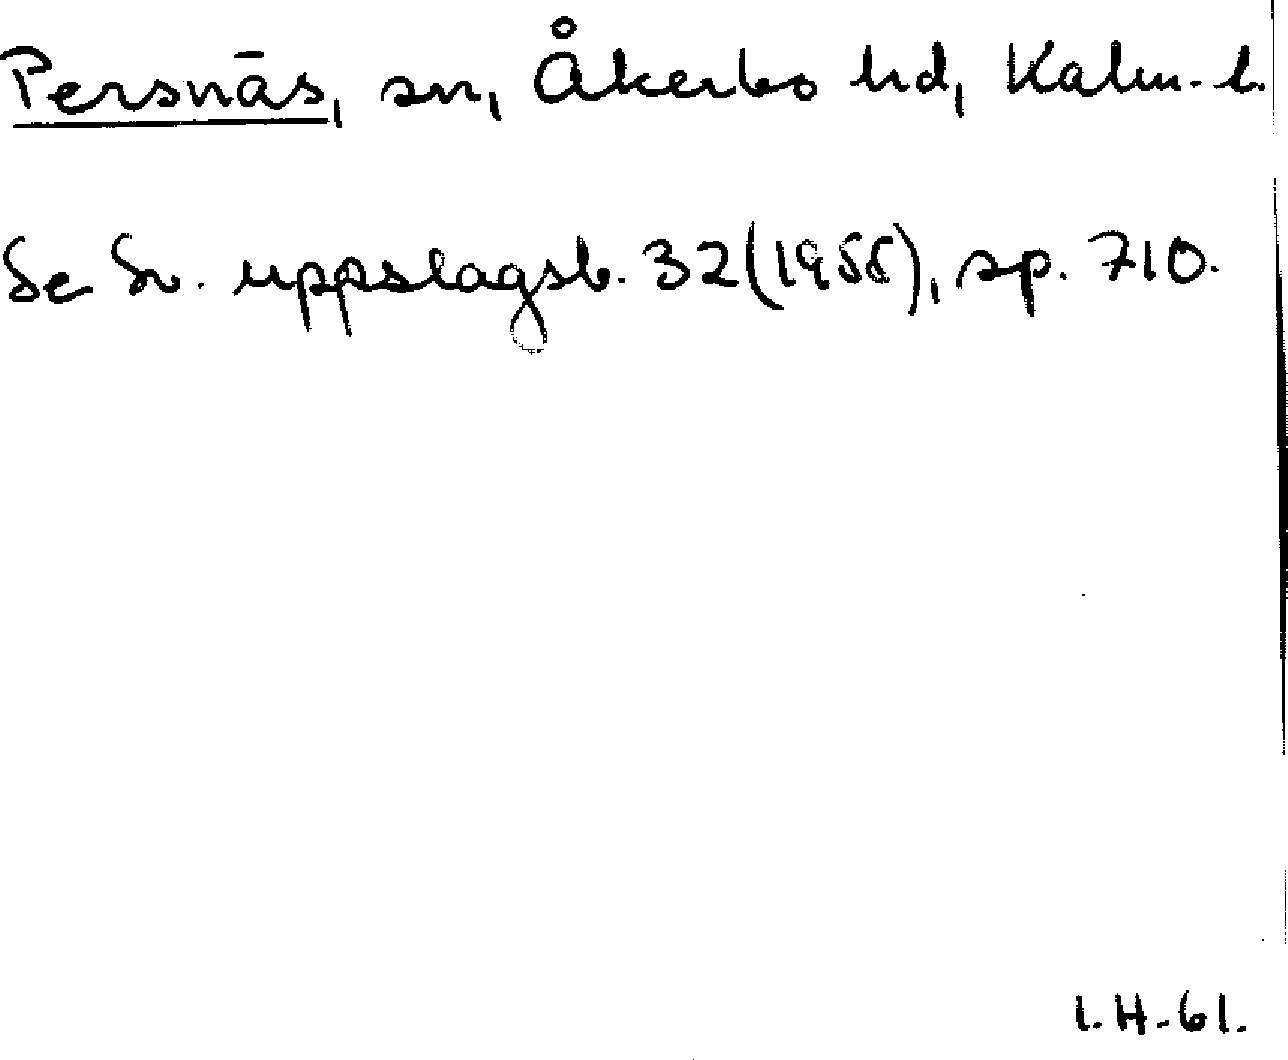 Persnäs, sn, Åkerbo hd, Kalm. l.
Se Sv. uppslagsb. 32 (1955), sp. 710.
I. H. 61.